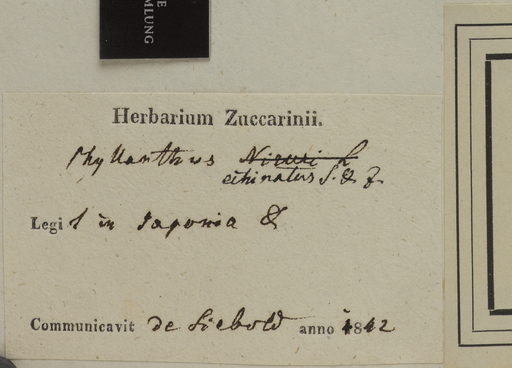 E
MLUNG
Herbarium Zuccarinii.
Phyllanthus Niruri L
echinatus S. & Z.
Legit in Japonia &
Communicavit de Siebold anno 1842